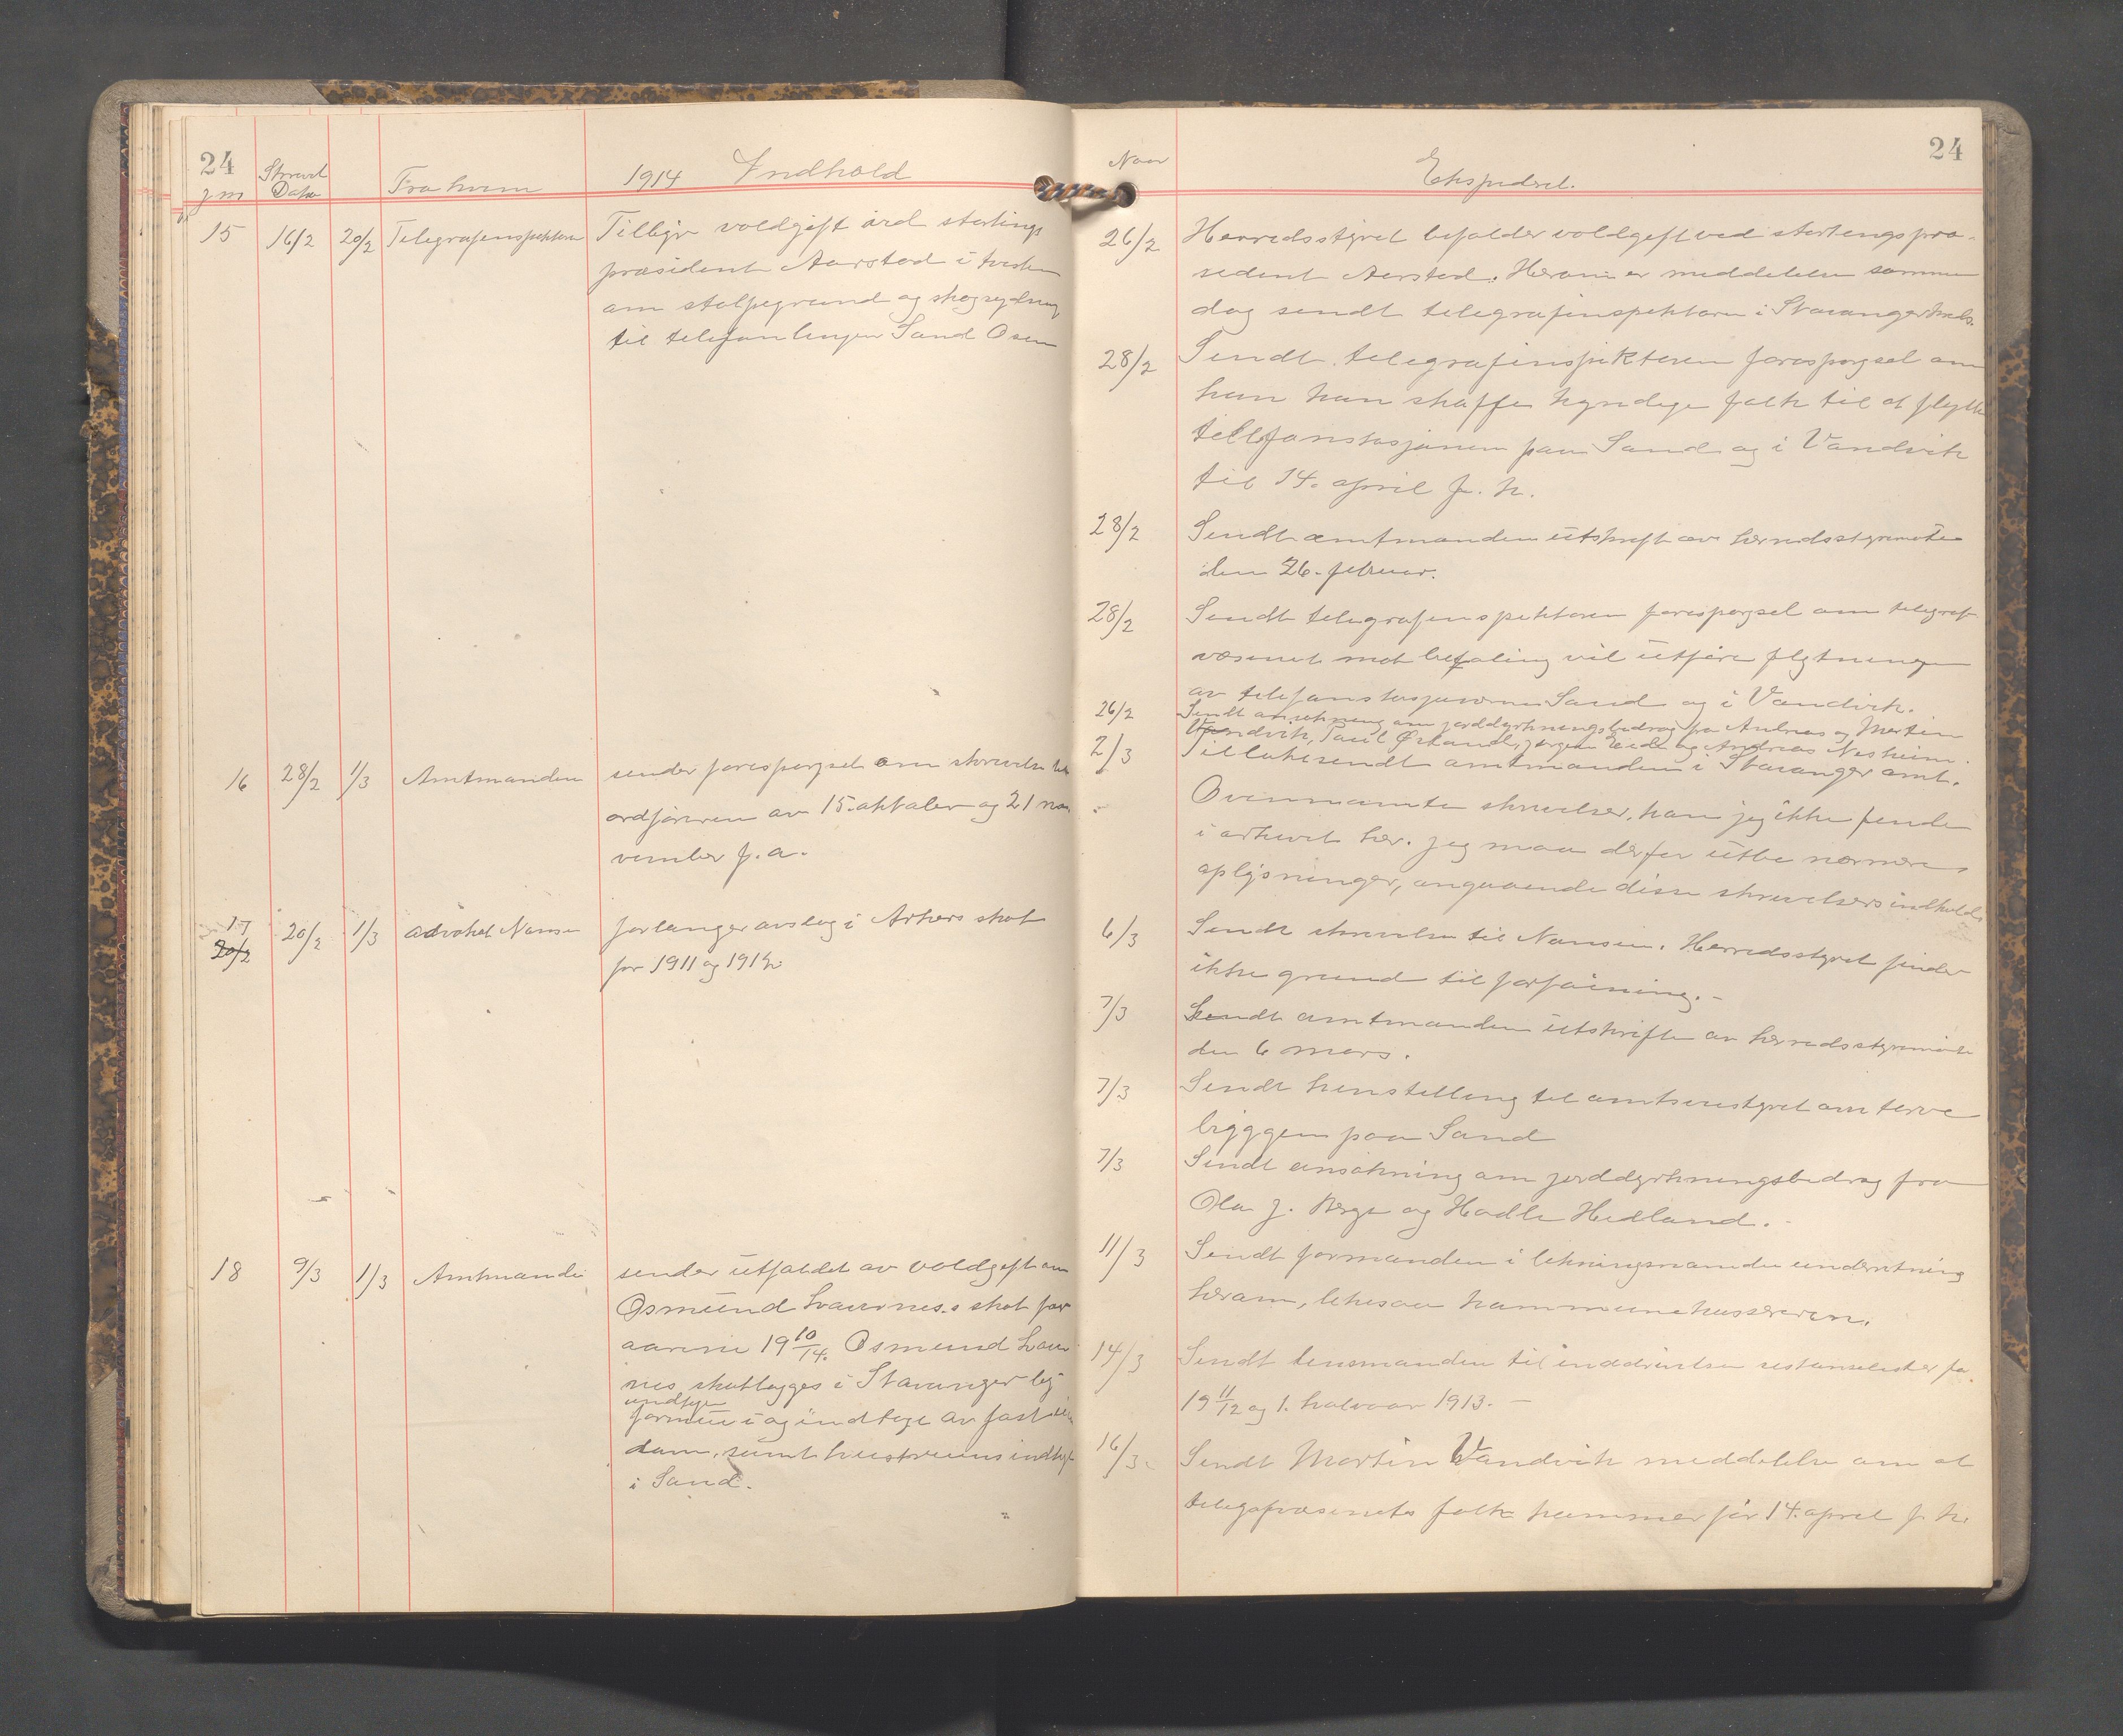 24
J. no
Skrevet
Dato
Fra hvem
1914 Indhold
15
16/2
20/2
Telegrafinspektøren
Tilbyr voldgift ved stortings
præsident Aarstad i tvisten
om stolpegrund og skogrydning
til telefonlinjen Sand Osen
16
28/2
1/3
Amtmanden
sender forespørsel om skrivelse
ordføreren av 15. oktober og 21 no
vember f. a.
17
20/2
20/2
1/3
advokat Nansen
forlanger avslag i Arkers skat
for 1911 og 1912
18
9/3
1/3
Amtmanden
sender utfaldet av voldgift om
Osmund Lvaernes.s skat for
aarene 19 10/14. Osmund
nes skatlægges i Stavanger by
undtagen
formue i og indtægt av fast
dom, samt hustruens indtægt
i Sand.
24
Naar
Ekspedert.
26/2
Herredsstyret befalder voldgift ved stortingspræ-
sident Aarstad. Herom er meddelelse samme
dag sendt telegrafinspektøren i Stavanger
28/2
Sendt telegrafinspektøren forespørsel om
han kan skaffe kyndige folk til at flytte
tellefonstasjonen paa Sand og i Vandvik
til 14. april f. k.
28/2
Sendt amtmanden utskrift av herredsstyremøte
den 26. februar.
28/2
Sendt telegrafinspektøren forespørsel om telegraf
væsenet mot betaling vil utføre flytningen
av telefonstasjonerne Sand og i Vandvik.
26/2
Sendt ansøkning om jorddyrkningsbidrag fra Andreas og Martin
Vandvik, Paul Ørland, Jørgen Eide og Andreas Nesheim.
2/3
Tilbakesendt amtmanden i Stavanger amt.
Ovennævnte skrivelser, kan jeg ikke finde
i arkivet her. Jeg maa derfor utbe nærmere
oplysninger, angaaende disse skrivelsers indhold.
6/3
Sendt skrivelse til Nansen. Herredsstyret finder
ikke grund til forføining. -
7/3
Sendt amtmanden utskrifter av herredsstyremøte
den 6 mars.
7/3
Sendt henstilling til amtsveistyret om
bryggen paa Sand
7/3
Sendt ansøkning om jorddyrkningsbidrag fra
Ola J. Berge og Hadle Hedland. -
11/3
Sendt formanden i likningsnævnden underretning
herom, likesaa kommunekassereren.
14/3
Sendt lensmanden til inddrivelse restanselister for
19 11/12 og 1. halvaar 1913. -
16/3
Sendt Martin Vandvik meddelelse om at
telegrafvæsenets folk kommer før 14. april f. k.